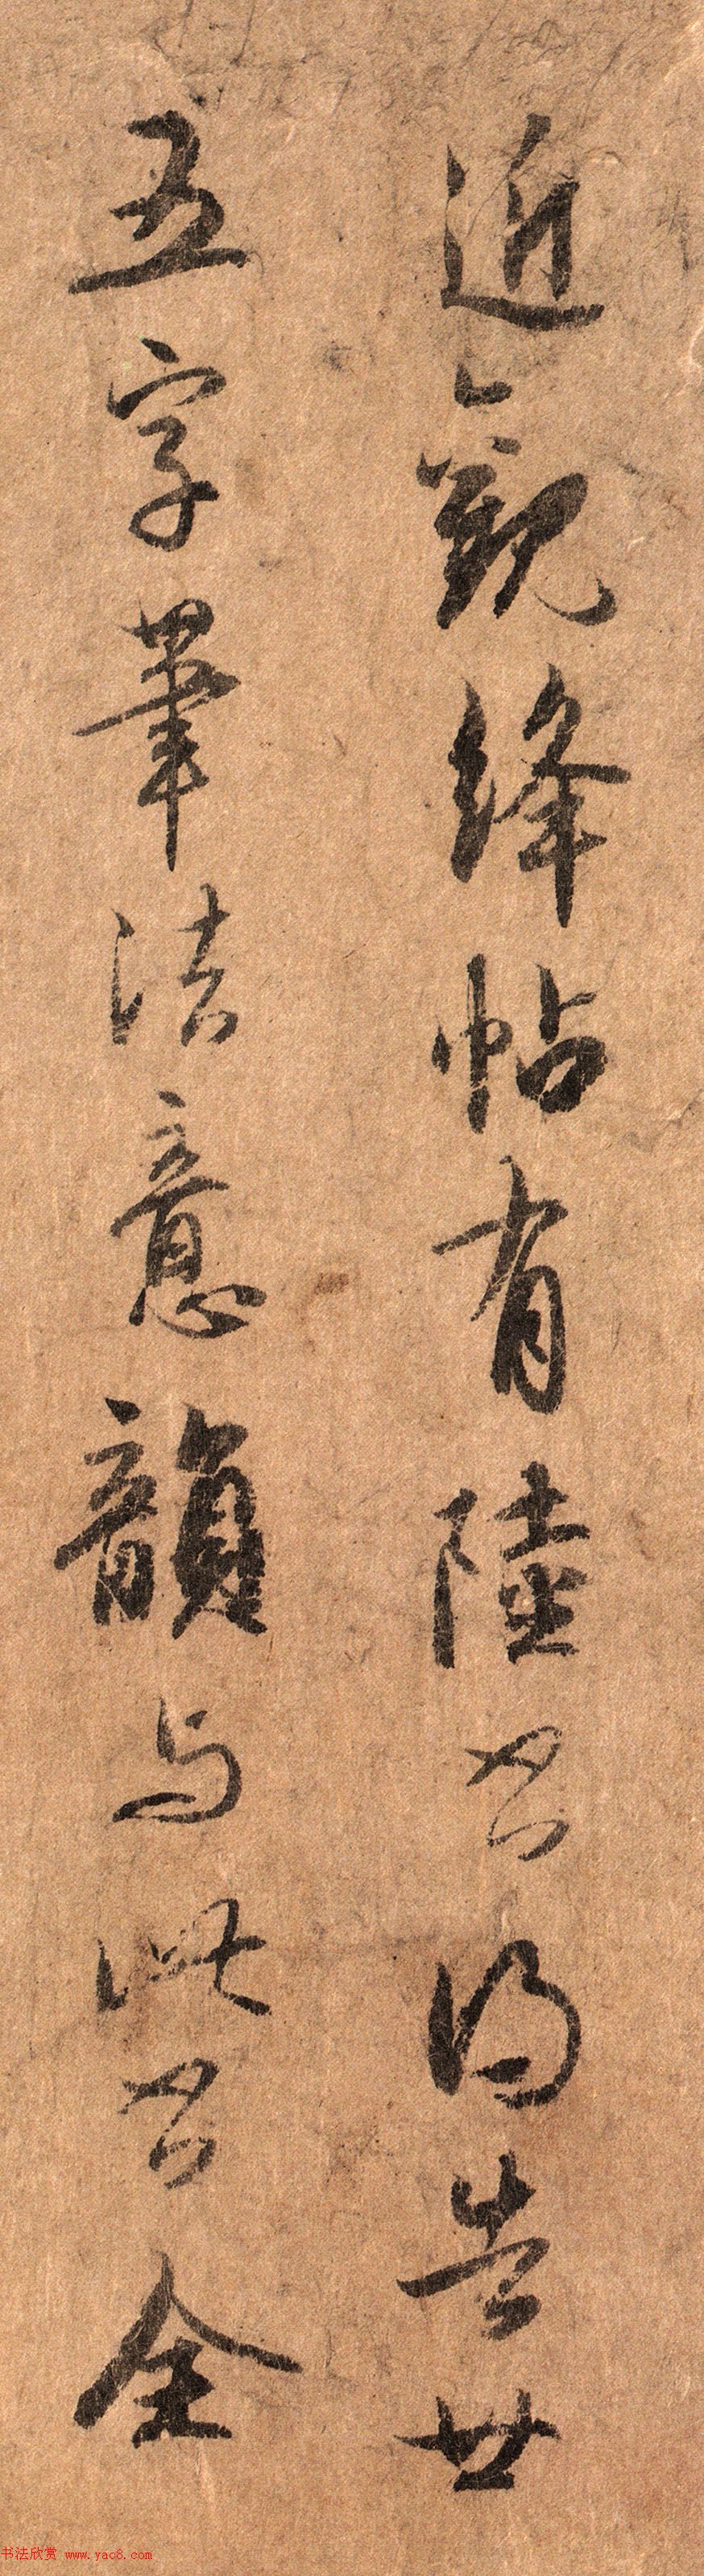 近觀絳帖有陸云得告廿
五字筆法意韻与此公全
书法欣赏 www.yac8.com